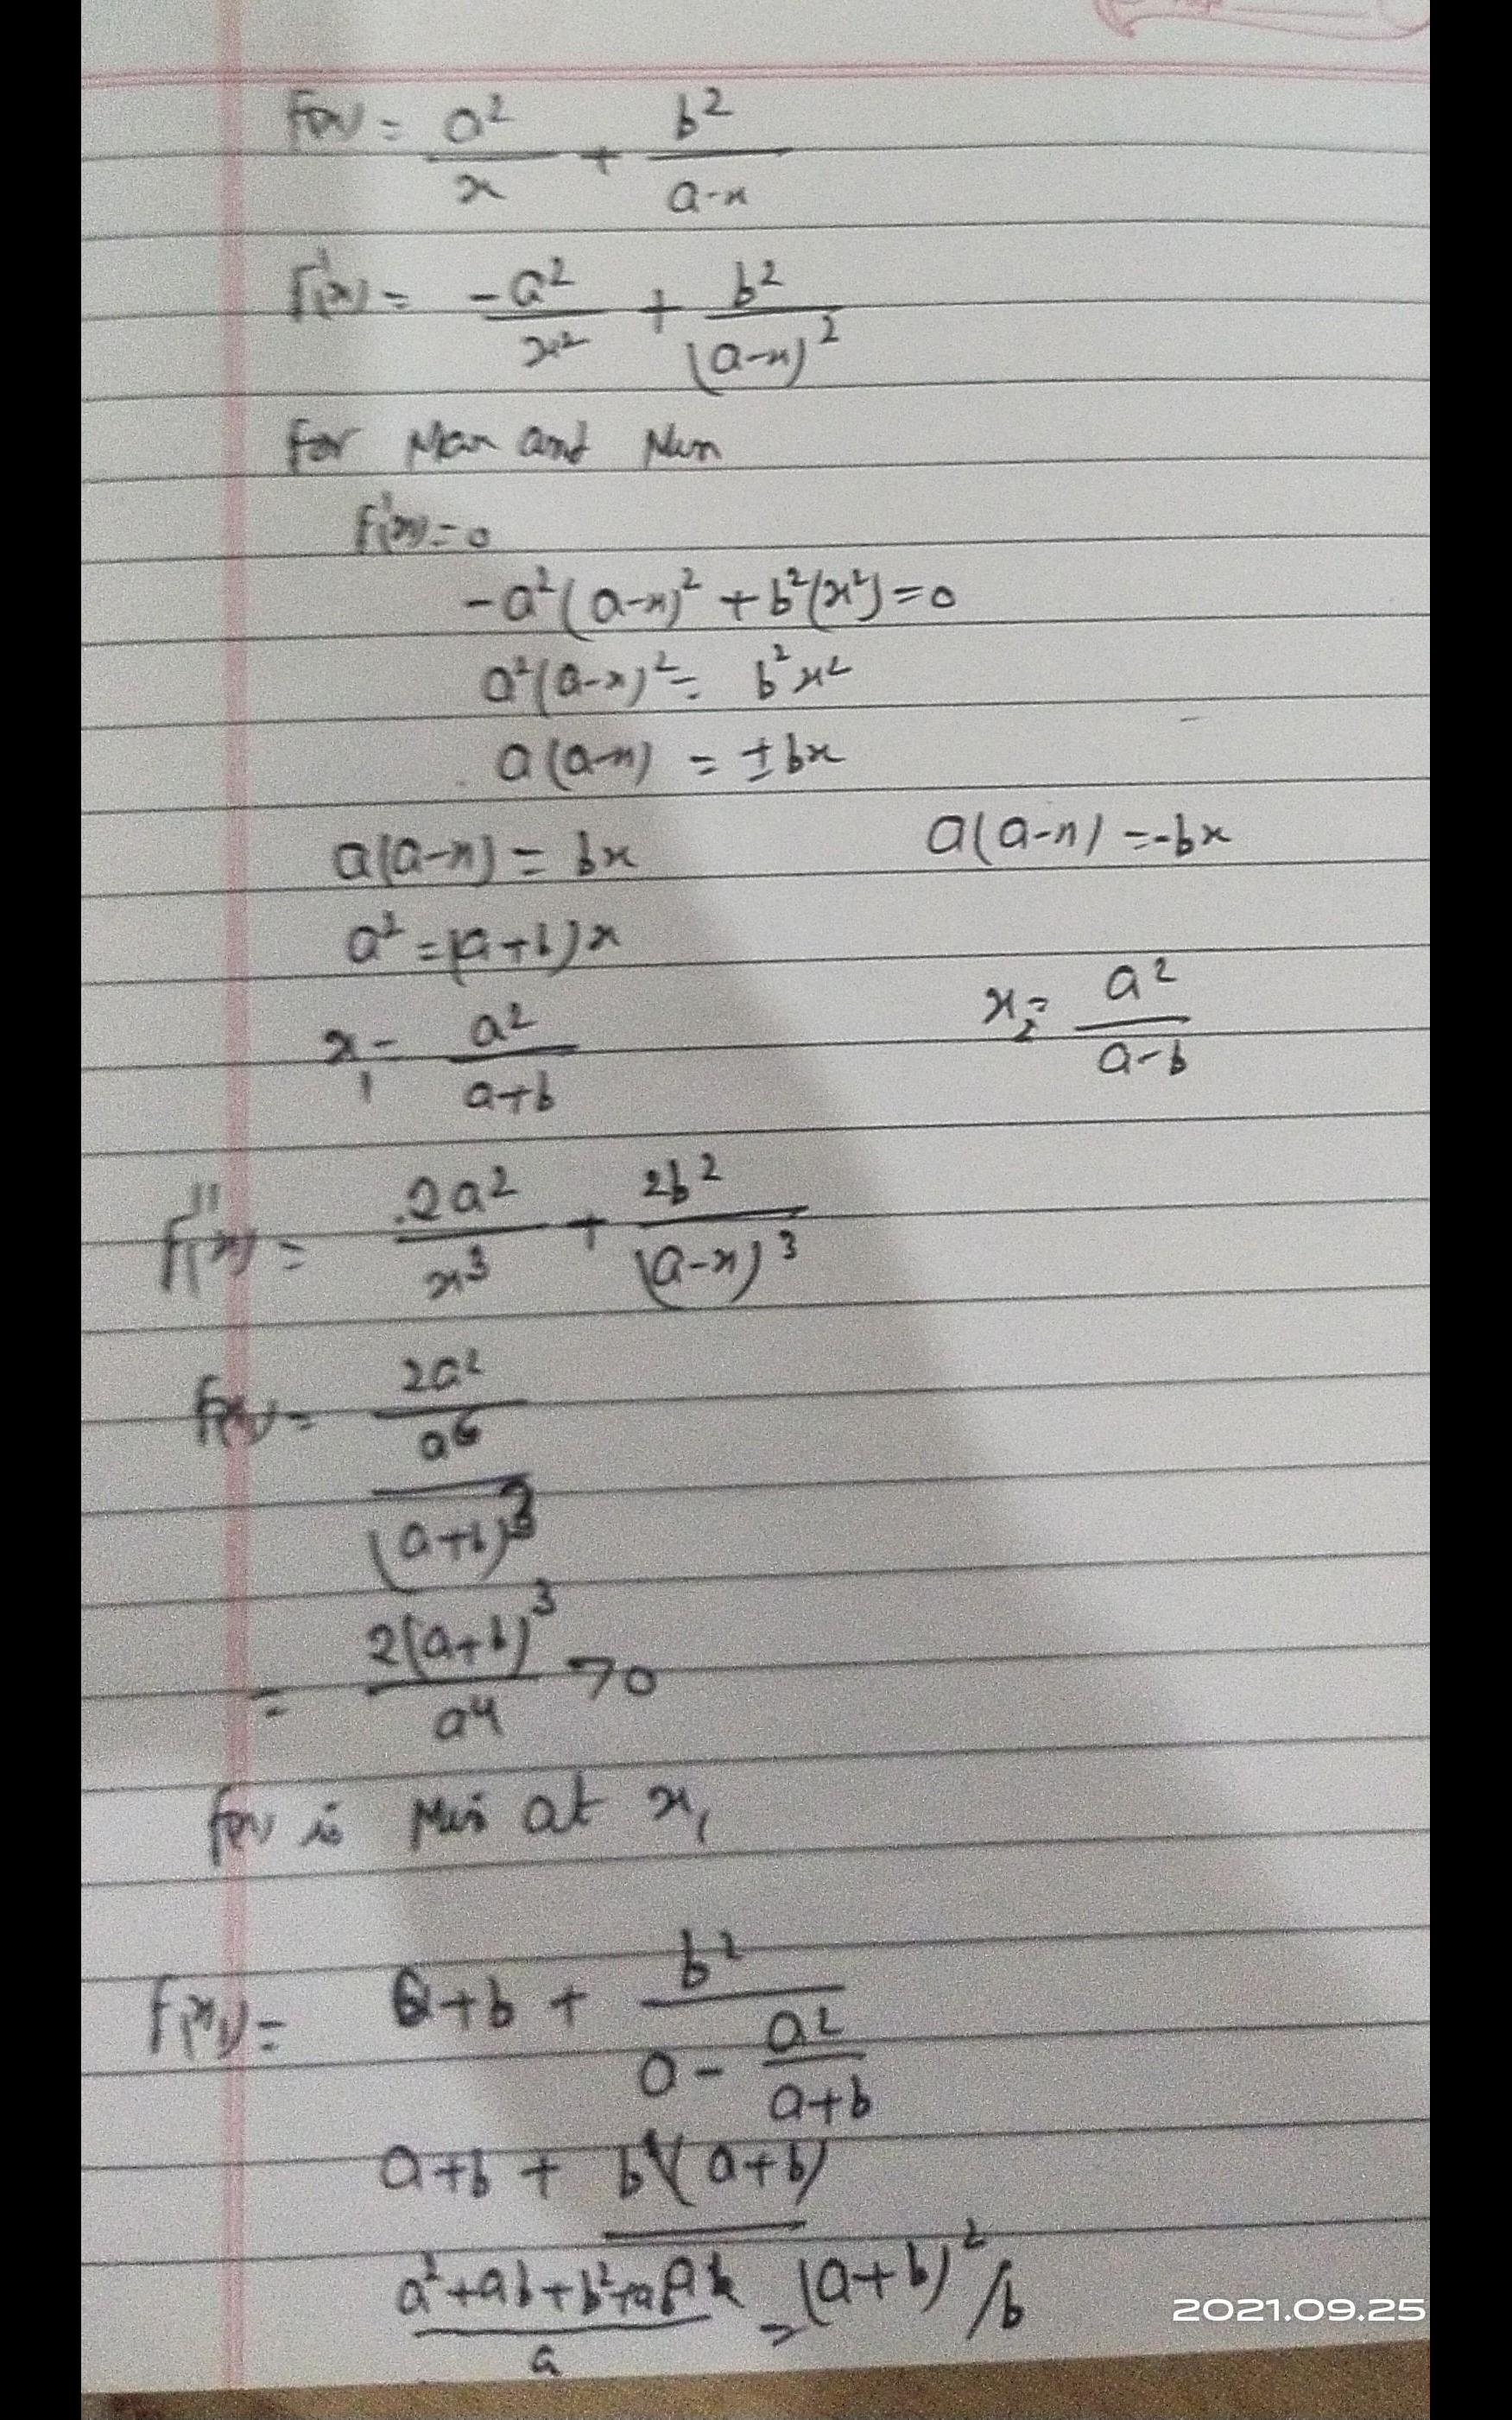 F(x) = a²/x + b²/(a-x)
F'(x) = -a²/x² + b²/(a-x)²
For Max and Min
F'(x) = 0
-a²(a-x)² + b²(x²) = 0
a²(a-x)² = b²x²
a(a-x) = ±bx
a(a-x) = bx a(a-x) = -bx
a² = (a+b)x
x₁ = a²/(a+b) x₂ = a²/(a-b)
F''(x) = 2a²/x³ + 2b²/(a-x)³
F(x₁) = 2a²/(a⁶/(a+b)³)
= 2(a+b)³/a⁴ >0
F(x) is Min at x₁
F(x₁) = a+b + b²/(a - a²/(a+b))
a+b + b²(a+b)/ab
(a²+ab+b²+ab)/a = (a+b)²/b
2021.09.25